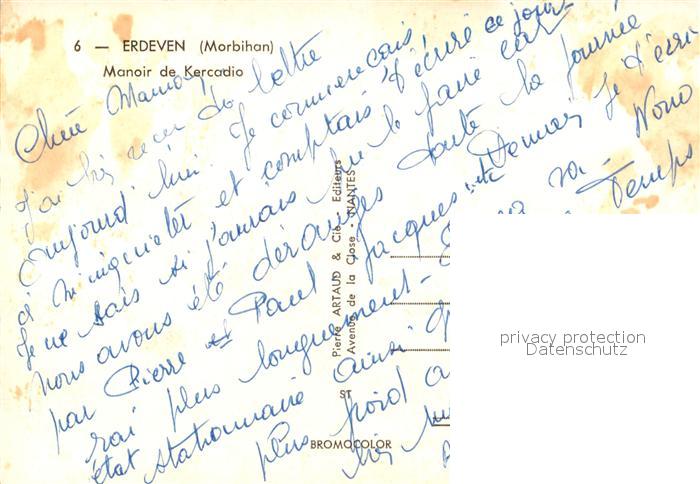 6 — ERDEVEN (Morbihan)
Manoir de Kercadio
Chère Maman
J'ai bien reçu ta lettre
aujourd'hui. Je commençais
à m'inquiéter et comptais t'écrire ce jour
Je ne sais si j'aurais pu le faire car
nous avons été dérangés toute la journée
par Pierre et Paul Jacques Demain je t'écri
rai plus longuement -
état stationnaire ainsi
va - Nono
plus froid Temps
Pierre ARTAUD & Cie - Editeurs
Avenue de la Close - NANTES
ST
BROMOCOLOR
privacy protection
Datenschutz